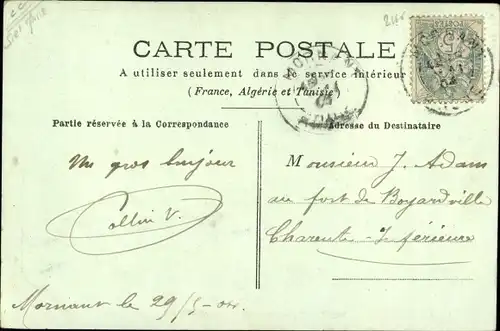 CARTE POSTALE
A utiliser seulement dans le service intérieur
(France, Algérie et Tunisie)
Partie réservée à la Correspondance
Adresse du Destinataire
Un gros bonjour
Collin V.
Monsieur J. Adam
au fort de Boyardville
Charente-Inférieure
Mornant le 29/5-04.
MORNANT
RHONE
POSTES
MORNANT